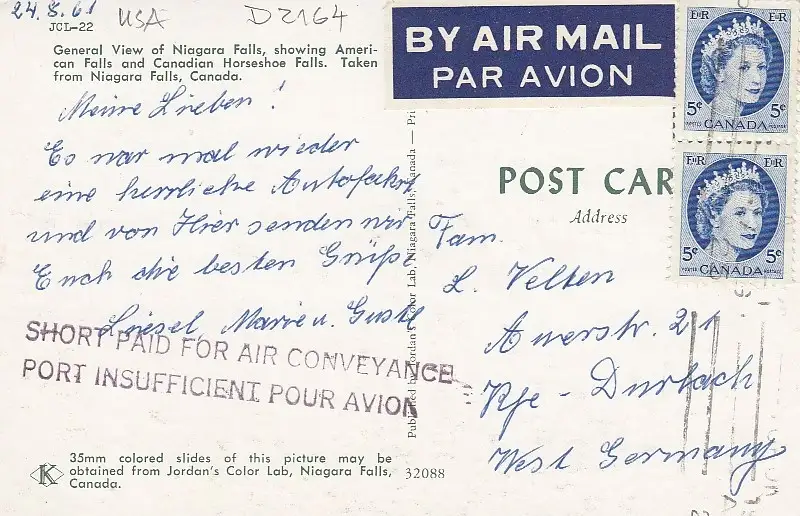 24.8.61 USA D2164
JCL-22
General View of Niagara Falls, showing Ameri-
can Falls and Canadian Horseshoe Falls. Taken
from Niagara Falls, Canada.
Meine Lieben!
Es war mal wieder
eine herrliche Autofahrt
und von Hier senden wir
Euch die besten Grüße
Liesel Marie u. Gustl
SHORT PAID FOR AIR CONVEYANCE
PORT INSUFFICIENT POUR AVION
35mm colored slides of this picture may be
obtained from Jordan's Color Lab, Niagara Falls,
Canada.
K
Published by Jordan's Color Lab, Niagara Falls, Canada —
32088
BY AIR MAIL
PAR AVION
EIIR EIIR
5¢ 5¢
POSTES CANADA POSTAGE
EIIR EIIR
5¢ 5¢
POSTES CANADA POSTAGE
POST CAR
Address
Fam.
L. Velten
Auerstr. 21
Khe - Durlach
West Germany